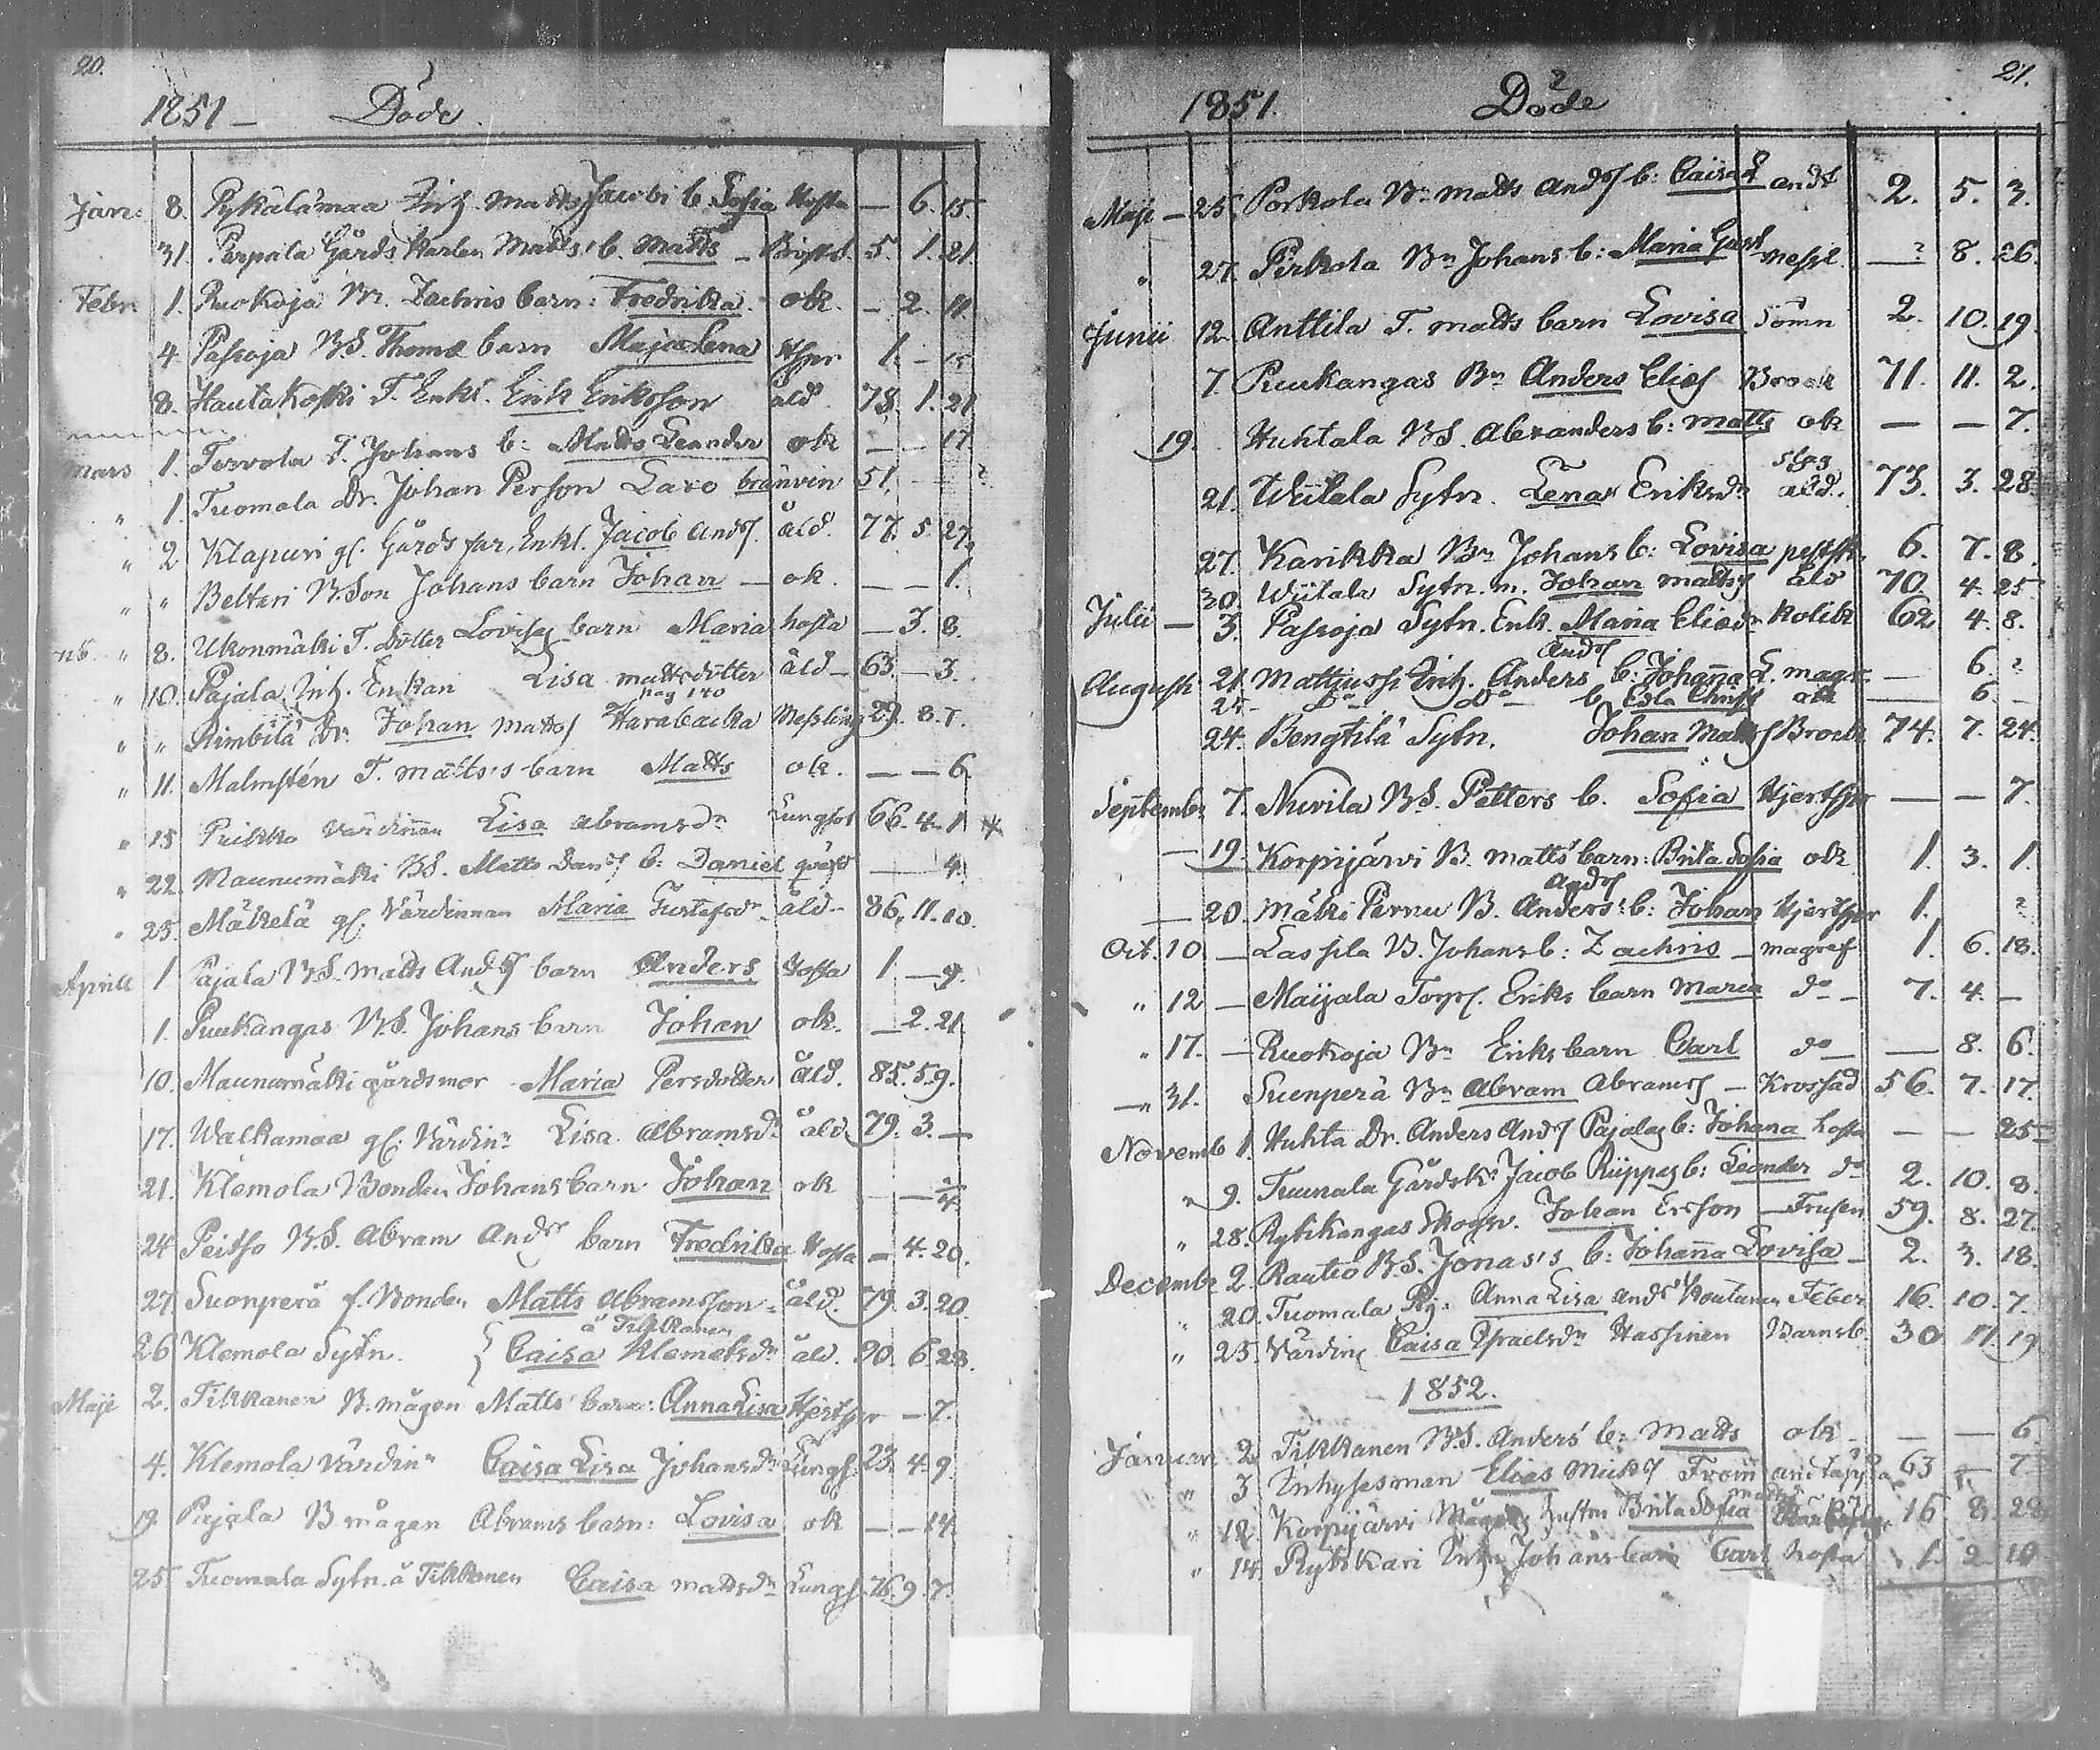 20.
1851 — Döde.
Jan: 8. Pykälämaa Inh. Matts Jacobs b. Sofia Hosta — 6. 15.
31. Perpala Gårds Karlen Matts' b. Matts — 5. 1. 21.
Febr. 1. Ruokoja Zachris barn: Fredrika ok. — 2. 11.
4. Passoja B.S. Thomæ barn Maja Lena 1. —
8. Hautakoski T. Enkl. Erik Eriksson åld 78. 1. 21
Mars 1. Torvola T. Johans b: Matts Leander ok — — 17.
" 1. Tuomala Dr. Johan Person Lavo bränvin 51. — ?
" 2 Klapuri gl. Gårds far, Enkl. Jacob Ands. åld. 77. 5. 27.
" " Beltari B.Son Johans barn Johan — ok. — — 1.
nb. " 8. Ukonmäki T. Dotter Lovisas barn Maria hosta — 3. 8.
" 10. Pajala Inh. Enkan Lisa mattsdotter åld — 63. — 3.
pag 140
" " Rimbilä Dr. Johan Matts Harabacka Messling 29. 8. 7.
" 11. Malmstén T. matts's barn Matts ok. — — 6
" 15 Puikko värdinnan Lisa Abramsdr Lungsot 66. 4. 1 *
" 22. Maunumäki B.S. Matts Dans b: Daniel — 4.
" 25. Mäkelä gl. Värdinnan Maria Gustafsdr åld — 86. 11. 10.
Aprill 1. Pajala B.S. Matts Ands barn Anders Hosta 1. — 9.
1. Puukangas B.S. Johans barn Johan ok. — 2. 21.
10. Maunumäki gårdsmor Maria Persdotter åld. 85. 5. 9.
17. Walkamaa gl. Värdinn Lisa Abramsdr åld 79. 3. —
21. Klemola Bonden Johans barn Johan ok — —
24 Peitso B.S. Abram Ands barn Fredrika Hosta — 4. 20.
27 Suonperä f. Bonden Matts Abramsson — åld. 79. 3. 20.
å Tikkanen
26 Klemola Sytn. Caisa Klemetsdr åld. 90. 6. 28.
Maji 2. Tikkanen B. mågen Matts' barn: Anna Lisa Hjertspr — 7.
4. Klemola värdinn Caisa Lisa Johansdr Lungs. 23. 4. 9.
19 Pajala B mågen Abrams barn: Lovisa ok — — 14.
25. Tuomala Sytn. å Tikkanen Caisa mattsdr Lungs. 76. 9. 7.
21.
1851. Döde
Maji — 25. Porkola Bn Matts Ands b: Caisa L andt 2. 5. 3.
" 27. Pirkola Bn Johans b: Maria Gust messl. —? 8. 26.
Junii 12. Anttila T. matts barn Lovisa Sömn 2. 10. 19.
7. Puukangas Bn Anders Elias Brock 71. 11. 2.
19. Huhtala B.S. Alexanders b: Matts ok — — 7.
slag
21. Wiitala Sytn. Lena Eriksdr åld. 73. 3. 28.
27. Karikka Bn Johans b: Lovisa 6. 7. 8.
30. Wiitala Sytn. m. Johan matts åld 70. 4. 25.
Julii — 3. Passoja Sytn. Enk. Maria Eliæ dr kolik 62 4. 8.
Ands
August 21. Mattjussi Inh. Anders b: Johanna L. magr. — 6. ?
24. Do Do b. ok — 6. —
24. Bengtilä Sytn. Johan Matts Brock 74. 7. 24.
Septembr 7. Nurila B.S. Petters b. Sofia Hjertspr — — 7.
— 19. Korpijärvi B. matts' barn: Brita Sofia ok 1. 3. 1.
Ands
— 20. Mäki Pernu B. Anders' b: Johan Hjertspr 1. ?
Oct. 10 — Lassila B. Johans b: Zachris — magref 1. 6. 18.
" 12 — Maijala Torp. Eriks barn Maria do — 7. 4. —
" 17. — Ruokoja Bn Eriks barn Carl do — 8. 6.
— " 31. Suonperä Bn Abram Abrams — Krossad 56. 7. 17.
Novemb 1. Huhta Dr. Anders Ands Pajalas b: Johana hosta — — 25
" 9. Tuomala Gårdsk. Jacob Riippas b: Leander do 2. 10. 8.
" 28. Rytikangas Skogsv. Johan Ersson — Frusen 59. 8. 27.
Decembr 2. Rautio B.S. Jonas's b: Johanna Lovisa — 2. 3. 18.
" 20. Tuomala Pig. Anna Lisa Ands Koutunen Feber 16. 10. 7.
" 25. Värdinn Caisa Israelsdr Hassinen Barnsb. 30 11. 19
1852.
Januari 2. Tikkanen B.S. Anders' b: Matts ok — — 6
" 3 Inhysesman Elias Mickels From 63 — 7.
" 12. Korpijärvi Mågens hustru Brita Sofia 16 8. 22
" 14. Rytikari Inh. Johans barn Carl hosta 1. 2. 10